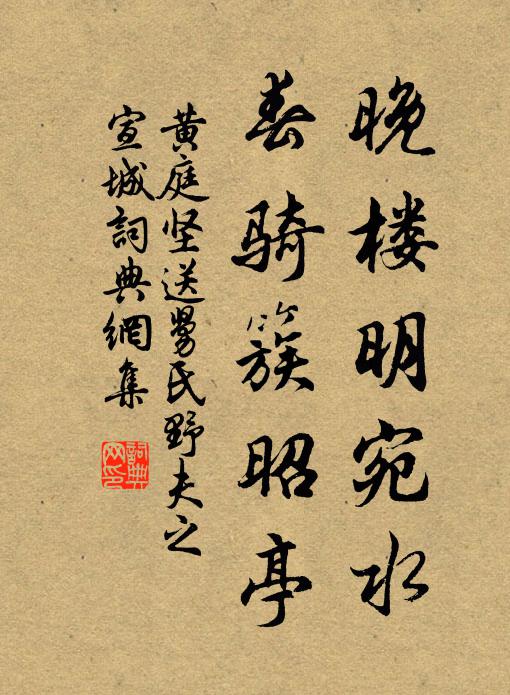 晚楼明宛水
春骑簇昭亭
黄庭坚送舅氏野夫之
宣城詞典網集
詞典
网印